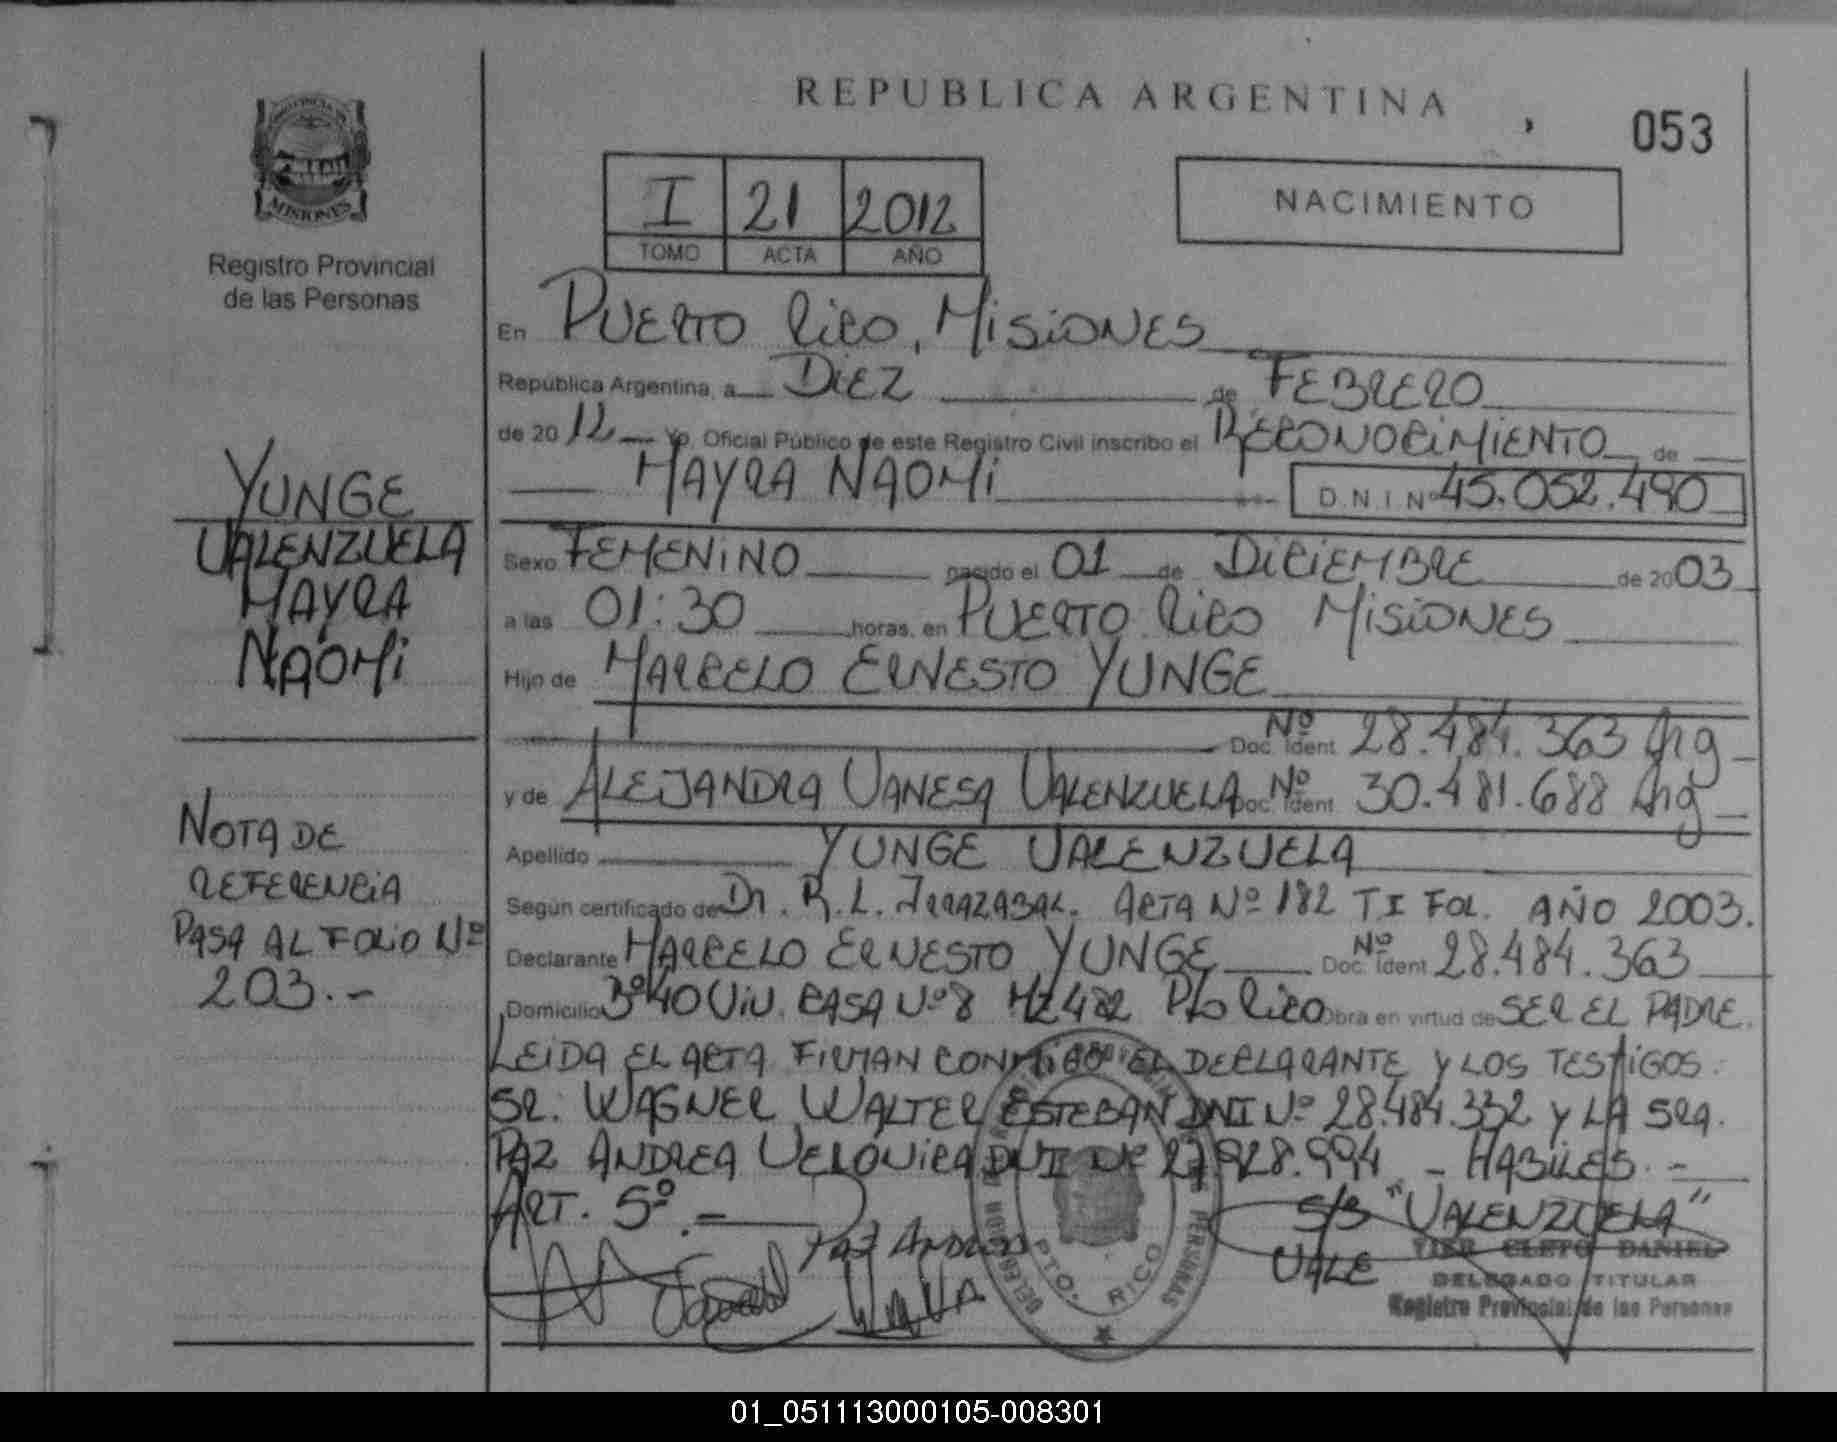 REPUBLICA ARGENTINA
053
PROVINCIA DE
MISIONES
Registro Provincial
de las Personas
I 21 2012
TOMO ACTA AÑO
NACIMIENTO
En PUERTO RICO, MISIONES
República Argentina, a DIEZ de FEBRERO
de 2012 Yo, Oficial Público de este Registro Civil inscribo el RECONOCIMIENTO de
MAYRA NAOMI D.N.I Nº 45.052.490
Sexo FEMENINO nacido el 01 de DICIEMBRE de 2003
a las 01:30 horas, en PUERTO RICO MISIONES
Hijo de MARCELO ERNESTO YUNGE
Doc. Ident Nº 28.484.363 Arg
y de ALEJANDRA VANESA VALENZUELA Doc. Ident Nº 30.481.688 Arg
Apellido YUNGE VALENZUELA
Según certificado de Dr. R. L. IRRAZABAL. ACTA Nº 182 T I FOL. AÑO 2003.
Declarante MARCELO ERNESTO YUNGE Doc. Ident Nº 28.484.363
Domicilio Bº 40 VIV. CASA Nº 8 MZ 482 Pto RICO Obra en virtud de SER EL PADRE.
LEIDA EL ACTA FIRMAN CONMIGO EL DECLARANTE Y LOS TESTIGOS:
SR. WAGNER WALTER ESTEBAN DNI Nº 28.484.332 Y LA SRA.
PAZ ANDREA VERONICA DNI Nº 27.928.994 - HABILES. -
ART. 5º. -
S/B "VALENZUELA"
VALE
Paz Andrea
PTO. RICO
PERSONAS
VIER CLETO DANIEL
DELEGADO TITULAR
Registro Provincial de las Personas
YUNGE
VALENZUELA
MAYRA
NAOMI
NOTA DE
REFERENCIA
PASA AL FOLIO Nº
203.-
01_051113000105-008301